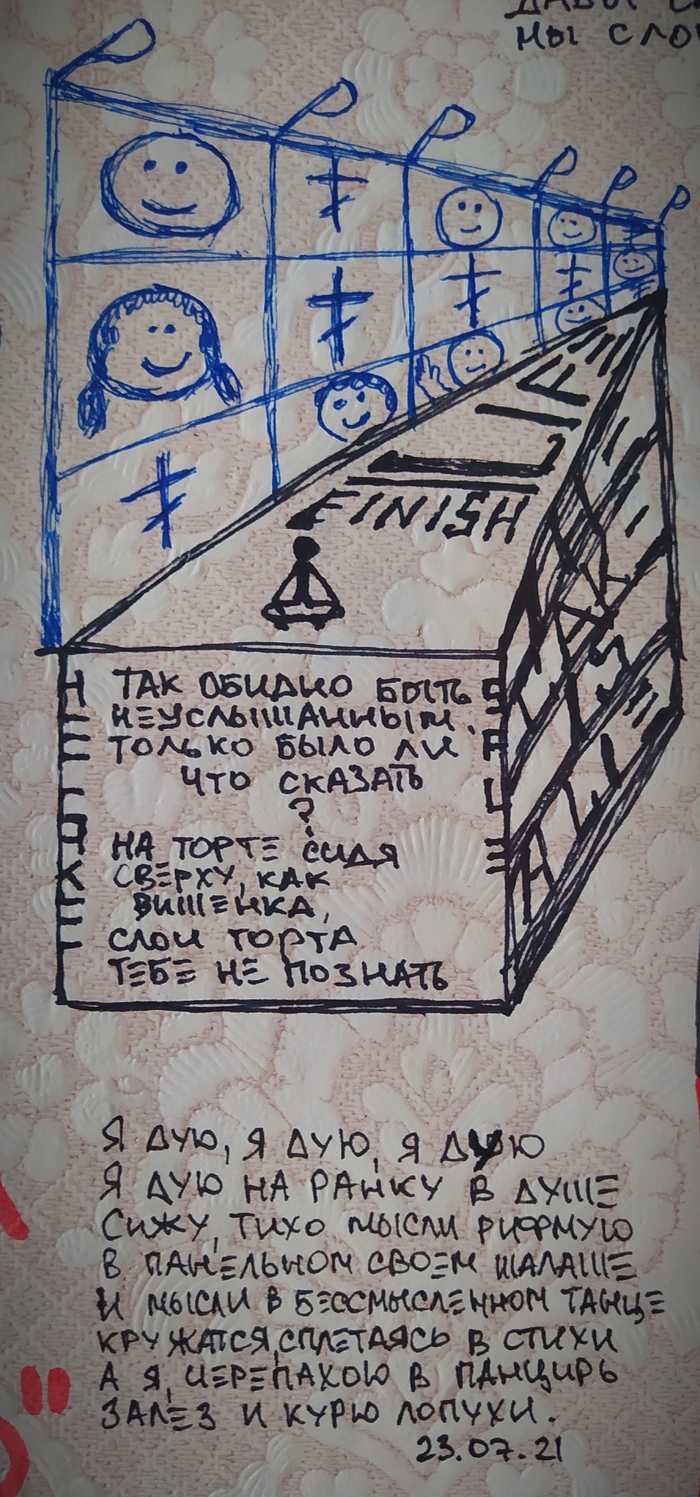 НЫ
FINISH
ТАК ОБИДНО БЫТЬ
НЕУСЛЫШАННЫМ,
ТОЛЬКО БЫЛО ЛИ
ЧТО СКАЗАТЬ
?
НА ТОРТЕ СИДЯ
СВЕРХУ, КАК
ВИШЕНКА,
СЛОИ ТОРТА
ТЕБЕ НЕ ПОЗНАТЬ
Я ДУЮ, Я ДУЮ, Я ДУЮ
Я ДУЮ НА РАНКУ В ДУШЕ
СИЖУ, ТИХО МЫСЛИ РИФМУЮ
В ПАНЕЛЬНОМ СВОЕМ ШАЛАШЕ
И МЫСЛИ В БЕССМЫСЛЕННОМ ТАНЦЕ
КРУЖАТСЯ, СПЛЕТАЯСЬ В СТИХИ
А Я, ЧЕРЕПАХОЮ В ПАНЦИРЬ
ЗАЛЕЗ И КУРЮ ЛОПУХИ.
23.07.21